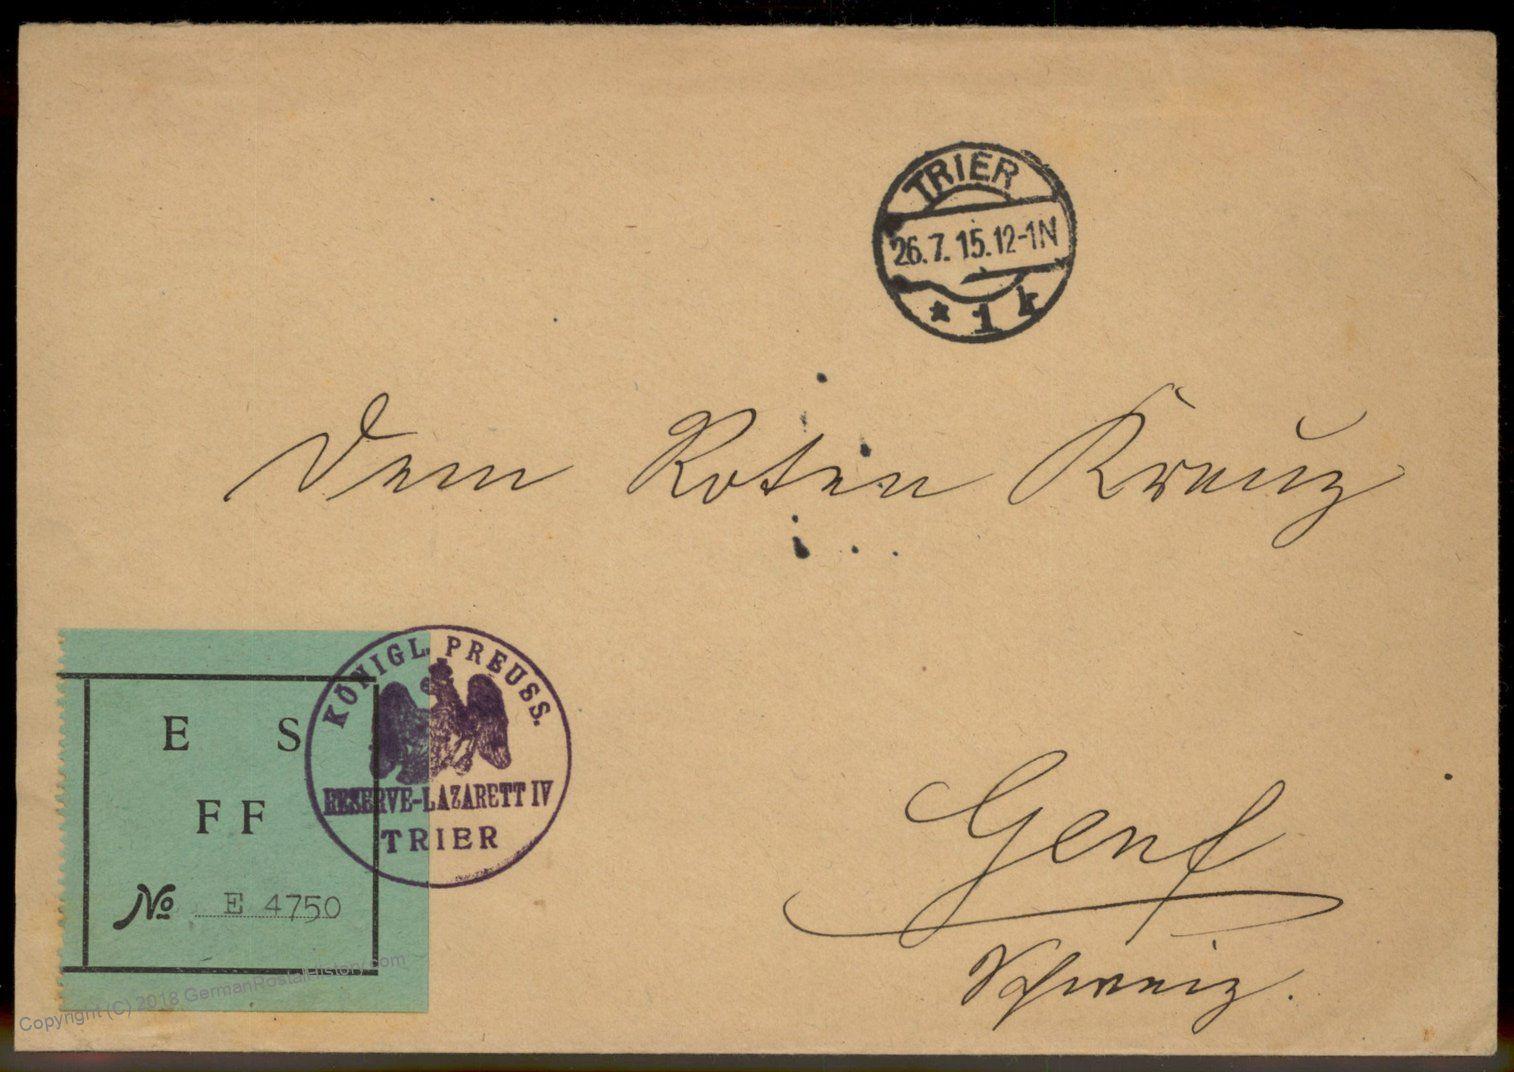 TRIER
26.7.15.12-1N
* 1 k
Dem Roten Kreuz
Genf
Schweiz.
KÖNIGL. PREUSS.
RESERVE-LAZARETT IV
TRIER
E S
FF
No E 4750
Copyright (C) 2018 GermanPostalHistory.com